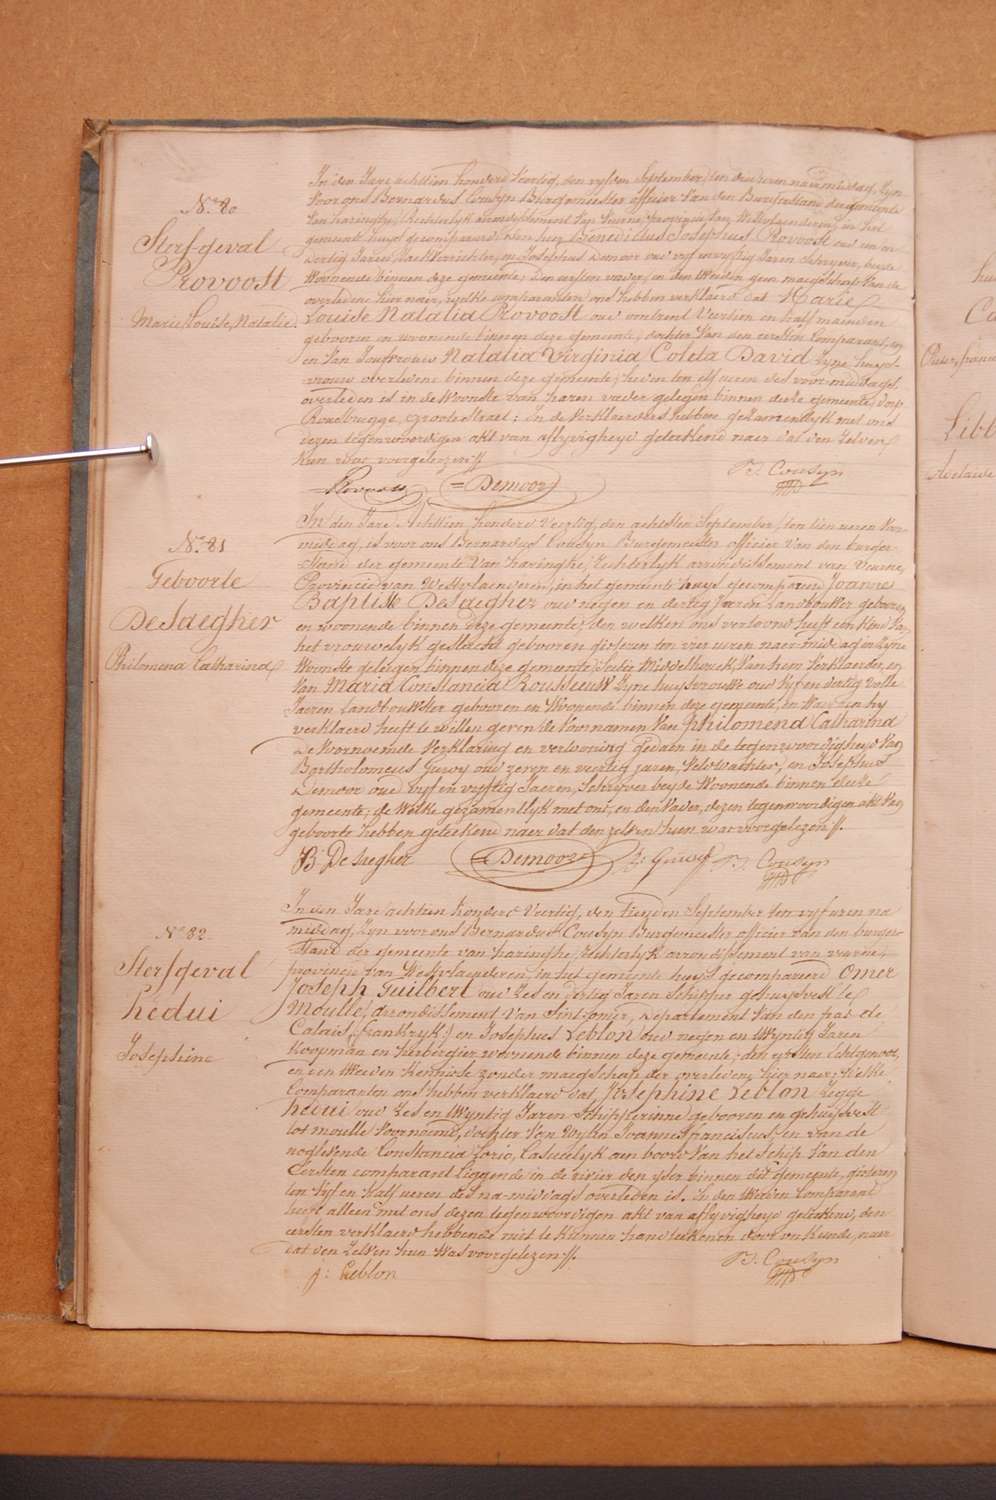 N.r 80
Sterfgeval
Provoost
Marie, Louise, Natalie
In den Jare achttien honderd Veertig, den vyfden September, ten dry uren namiddag, Zyn
Voor ons Bernardus Cousyn Burgemeester officier Van den Burgerstand der gemeente
Van haringhe, Rechterlyk arrondissement Van Veurne, provincie Van Westvlaenderen, in het
gemeente huys gecompareerd, den heer Benedictus Josephus Provoost oud een en
dertig Jaren, en Josephus Demoor oud vyf en vyftig Jaren Schryver, beyde
Woonende binnen deze gemeente; den eersten vader, en den Weeden geen maegschap Van de
overledene hier naer, welke comparanten ons hebben verklaerd dat Marie
Louise Natalia Provoost oud veertien en half maenden
geboren en woonende binnen deze gemeente, dochter Van den eersten Comparant, en
en Van Joufvrouw Natalia Virginia Coleta David Zyne huys-
vrouw overledene binnen deze gemeente; heden ten elf uren des voor-middags
overleden is in de Woonste van haren vader gelegen binnen deze gemeente, dorp
Rousbrugge, groote Straet: En de Verklaerders hebben gezamentlyk met ons
dezen tegenwoordigen akt van aflyvigheyd geteekend naer dat den Zelven
hun was voorgelezen //.
Provoost Demoor B. Cousyn
N.r 81
Geboorte
DeSaegher
Philomena Catharina
In den Jare Achttien honderd Veertig, den achtsten September, ten tien uren Voor-
middag, is voor ons Bernardus Cousyn Burgemeester officier Van den burger-
Stand der gemeente Van haringhe, Rechterlyk arrondissement van Veurne,
Provincie van Westvlaenderen, in het gemeente huys gecompareerd Joannes
Baptiste DeSaegher oud negen en dertig Jaren Landbouwer geboren
en woonende binnen deze gemeente, den welken ons vertoond heeft een kind Van
het vrouwelyk geslacht geboren gisteren ten vier uren naer-middag in Zyne
Woonste gelegen binnen deze gemeente, Van hem Verklaerder, en
Van Maria Constancia Rousseeuw Zyne huysvrouwe oud Vyf en dertig volle
Jaeren Landbouwster geboren en Woonende binnen deze gemeente, en Waer aen hy
verklaerd heeft te willen geven de Voornamen Van philomena Catharina
De Voornoemde Verklaring en vertooning gedaen in de tegenwoordigheyd Van
Bartholomeus Guwy oud zeven en veertig jaren, Veldwachter, en Josephus
Demoor oud vyf en vyftig Jaeren, Schryver beyde Woonende binnen deze
gemeente; de Welke gezamentlyk met ons, en den Vader, dezen tegenwoordigen akt Van
geboorte hebben geteekend naer dat den zelven hun was voorgelezen //.
B De Saegher Demoor B: Guwy B. Cousyn
N.o 82.
Sterfgeval
hedui
Josephine
In den Jare achttien honderd Veertig, den Tienden September ten vyf uren na
middag, Zyn voor ons Bernardus Cousyn Burgemeester officier van den burger-
Stand der gemeente van haringhe, Rechterlyk arrondissement van veurne,
provincie Van Westvlaenderen, in het gemeente huys gecompareerd Omer
Joseph Guilbert oud Zes en dertig Jaren Schipper gehuysvest te
Moulle, arrondissement Van Sint-Omer, Departement Van den pas de
Calais (frankryk) en Josephus Leblon oud negen en twyntig Jaren
Koopman en herbergier, woonende binnen deze gemeente; den eersten Echtgenoot,
en den Weeden Kennisse zonder maegschap der overledene, hier naer; Welke
Comparanten ons hebben verklaerd dat, Josephine Leblon Zegge
hedui oud Zes en twyntig Jaren Schipperinne geboren en gehuysvest
tot moulle Voornoemd, dochter Van Wylen Joannes franciscus, en van de
noglevende Constancia Zorio, Casuelyk aen boord Van het Schip Van den
Eersten comparant liggende in de rivier den yser binnen dit gemeente, gisteren
ten vyf en half ueren des na-middags overleden is. En den Weeden Comparant
heeft alleen met ons dezen tegenwoordigen akt van aflyvigheyd geteekend, den
eersten verklaerd hebbende niet te kunnen handteekenen door onkunde, naer
dat den Zelven hun Was voorgelezen //.
j: Leblon B. Cousyn
hu
Co
Pieter, franci
Lebl
Adelaïde